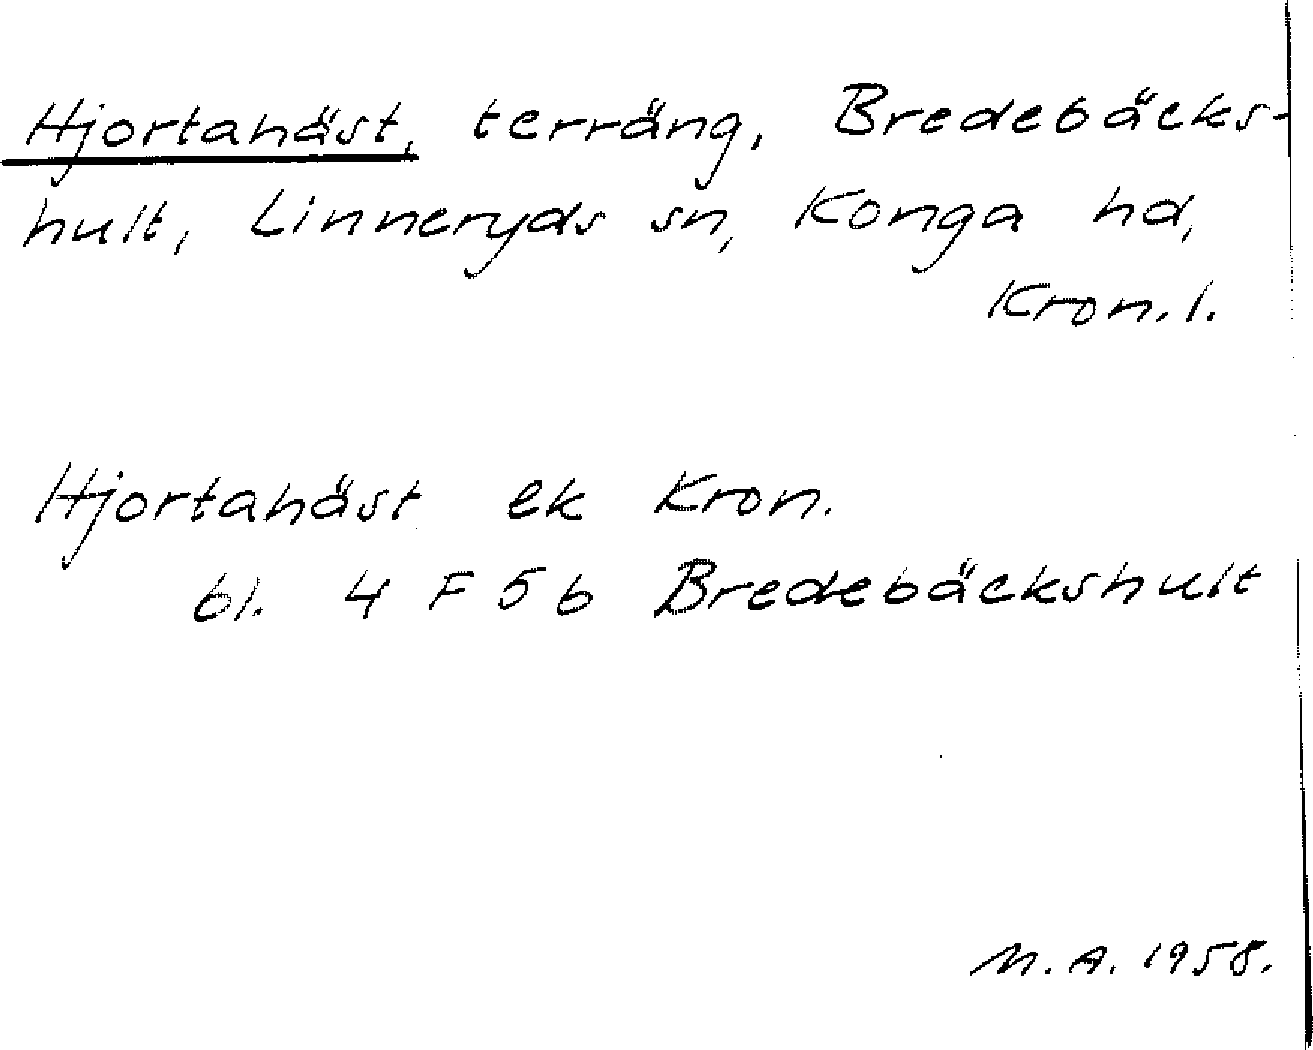 Hjortahäst, terräng, Bredebäcks-
hult, Linneryds sn, Konga hd,
Kron. l.
Hjortahäst ek Kron.
bl. 4 F 5 b Bredebäckshult
M. A. 1958.